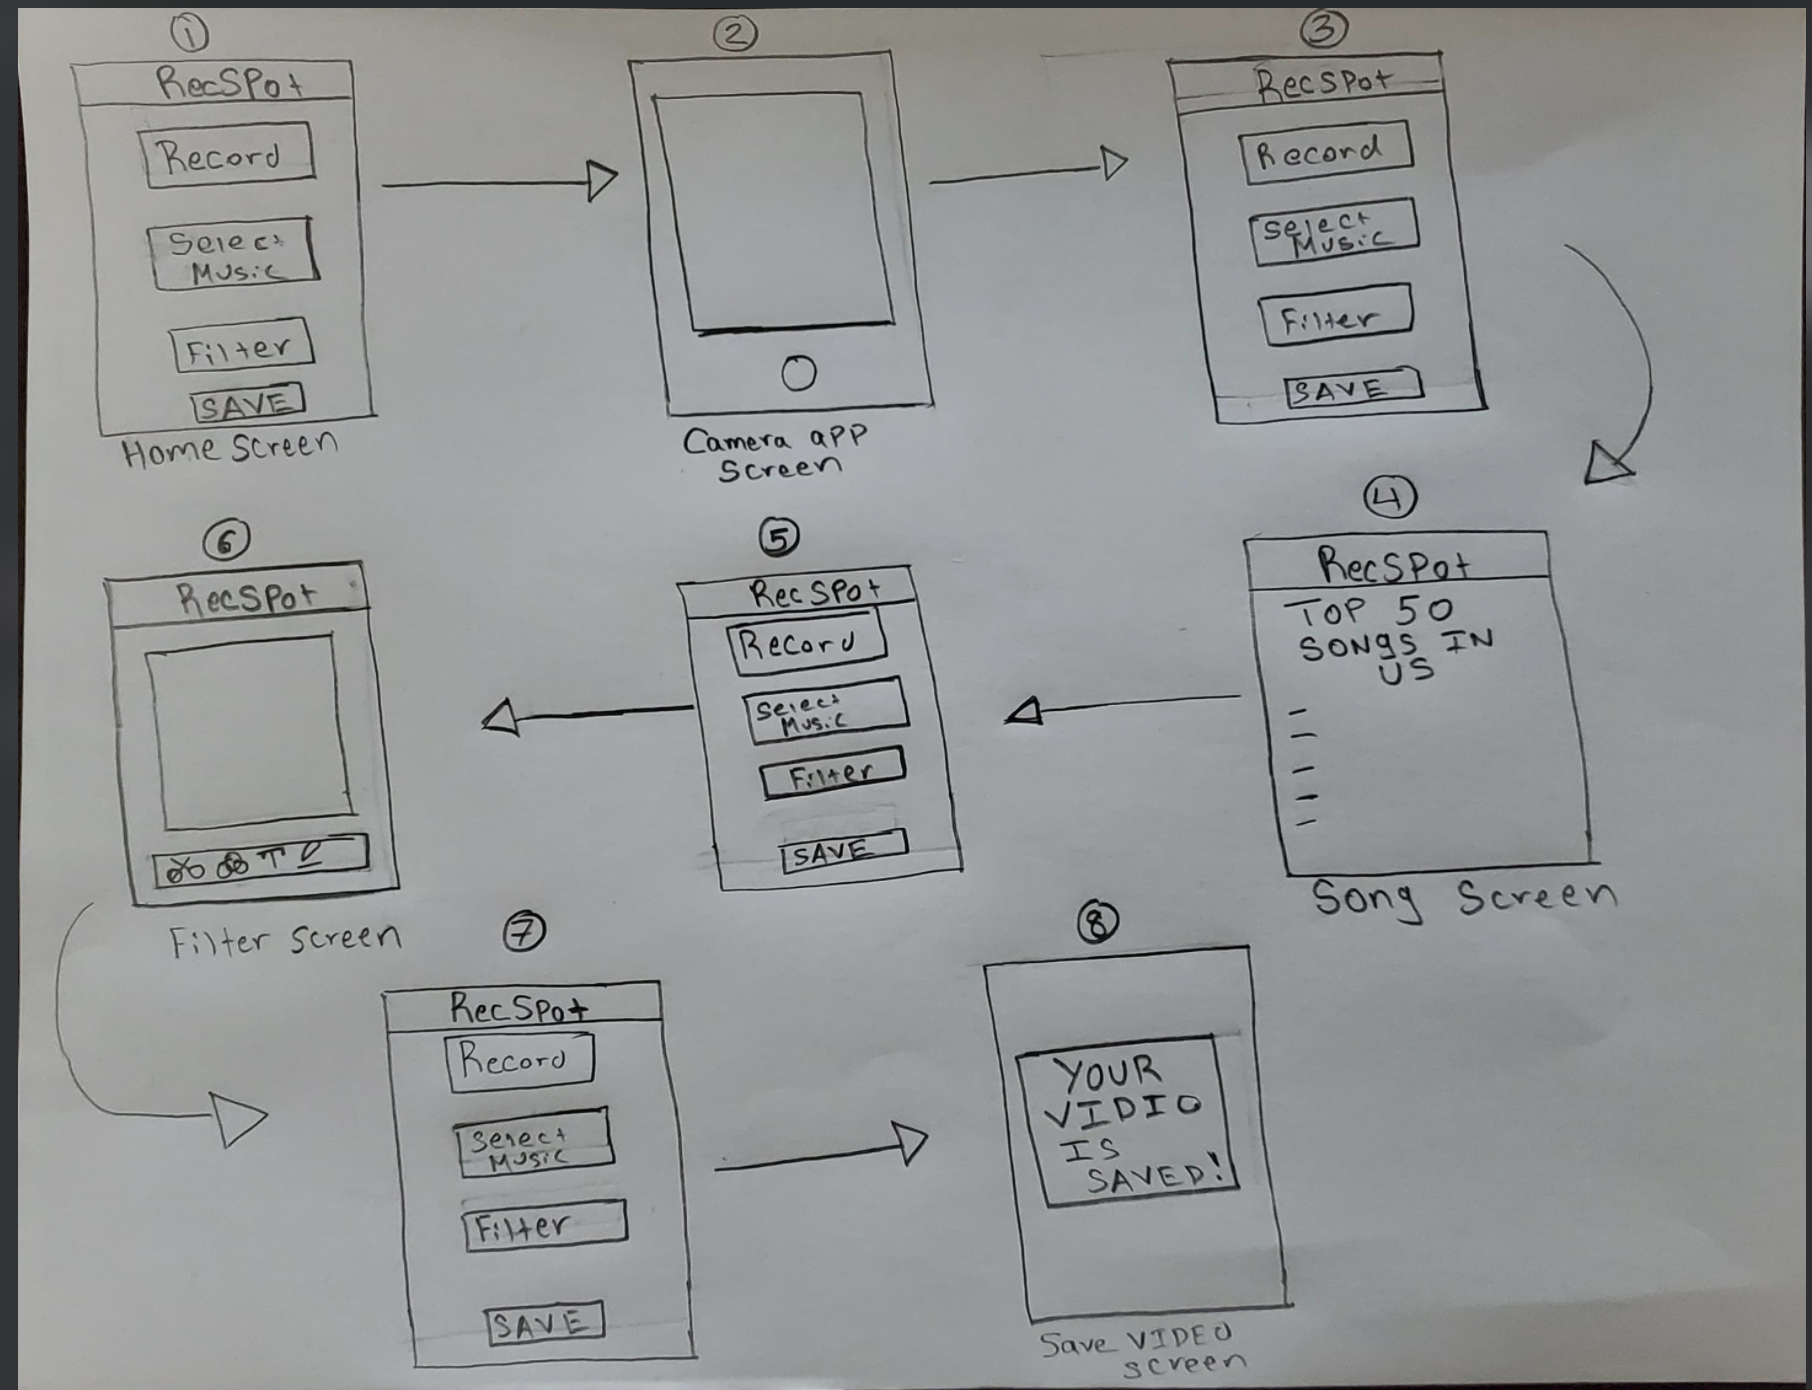 1
RecSPot
Record
Select
Music
Filter
SAVE
Home Screen
2
Camera aPP
Screen
3
RecSPot
Record
Select
Music
Filter
SAVE
4
RecSPot
TOP 50
SONgS IN
US
Song Screen
5
RecSPot
Record
Select
Music
Filter
SAVE
6
RecSPot
T
Filter Screen
7
RecSPot
Record
Select
Music
Filter
SAVE
8
YOUR
VIDIO
IS
SAVED!
Save VIDEO
screen